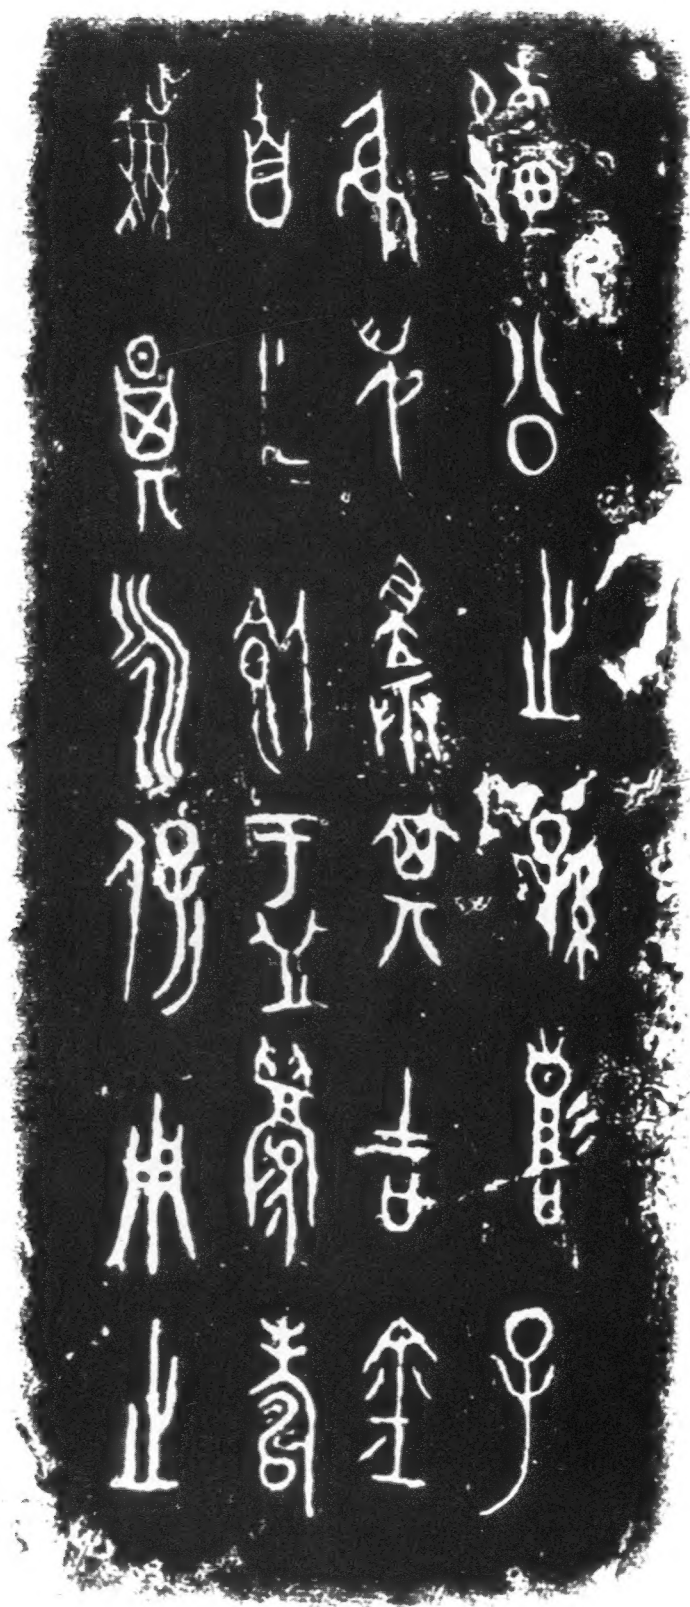 公之孫子
擇其吉金
自乍飤盂眉壽
無期永保用之